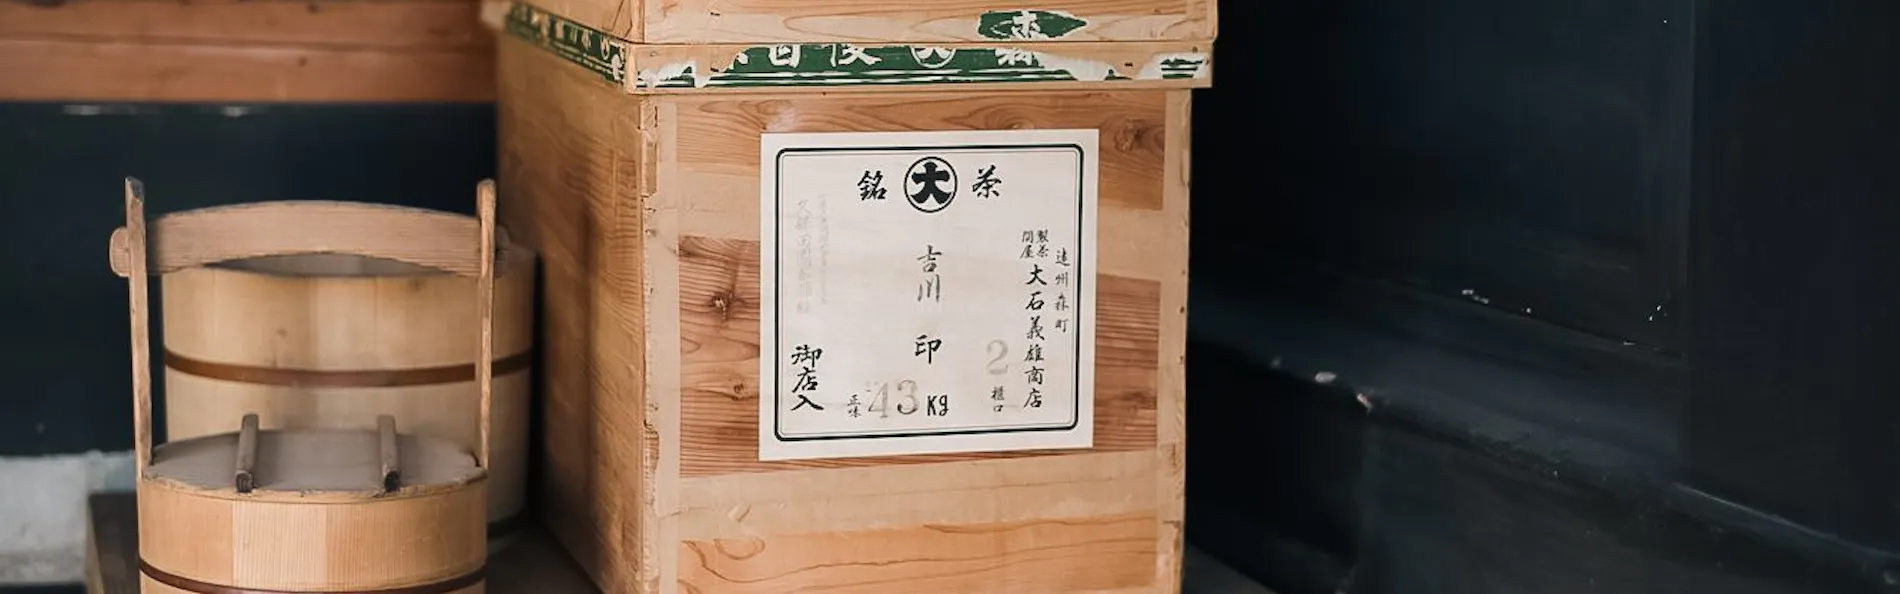 銘 大 茶
遠州森町
製茶問屋
大石義雄商店
2 櫃口
吉川印
正味 43 Kg
御店入